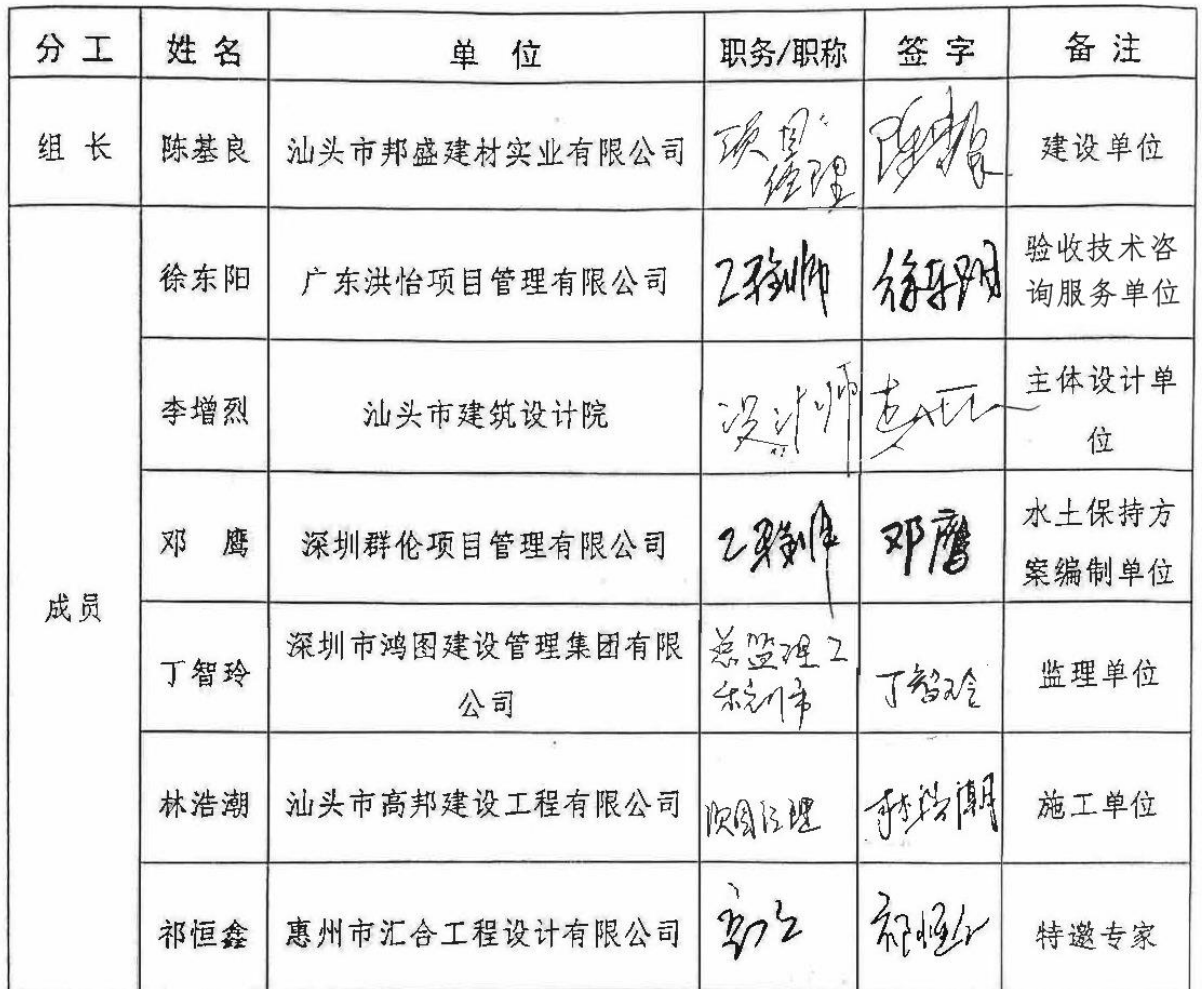 分工 姓名 单位 职务/职称 签字 备注
组长 陈基良 汕头市邦盛建材实业有限公司 项目经理 建设单位
徐东阳 广东洪怡项目管理有限公司 工程师 徐东阳 验收技术咨
询服务单位
李增烈 汕头市建筑设计院 设计师 主体设计单
位
邓鹰 深圳群伦项目管理有限公司 工程师 邓鹰 水土保持方
案编制单位
成员
丁智玲 深圳市鸿图建设管理集团有限 总监理工 丁智玲 监理单位
公司 程师
林浩潮 汕头市高邦建设工程有限公司 项目经理 林浩潮 施工单位
祁恒鑫 惠州市汇合工程设计有限公司 高工 特邀专家